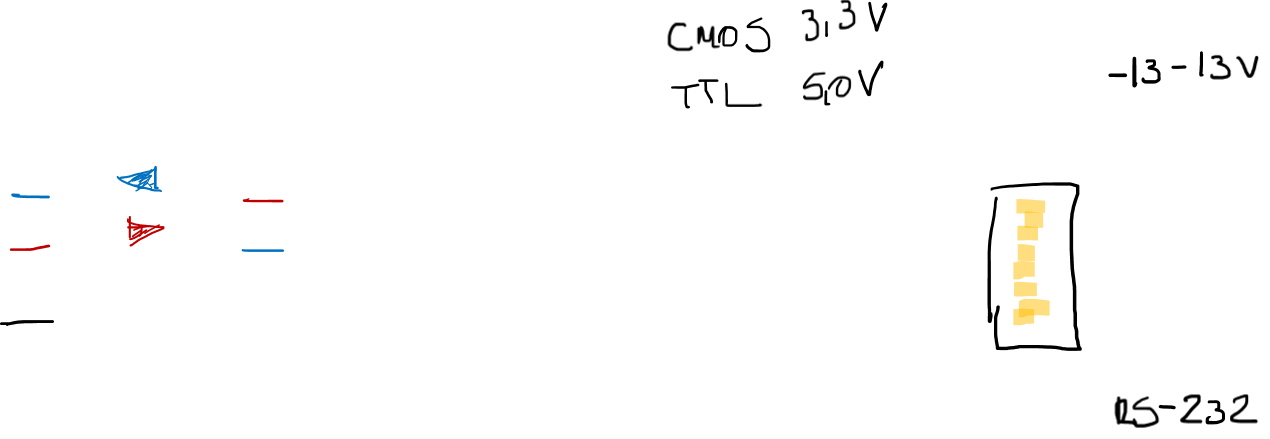 CMOS 3,3V
TTL 5,0V
-13-13V
RS-232